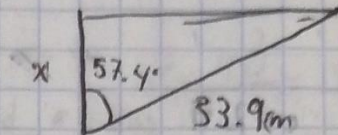 x 57.4°
33.9cm